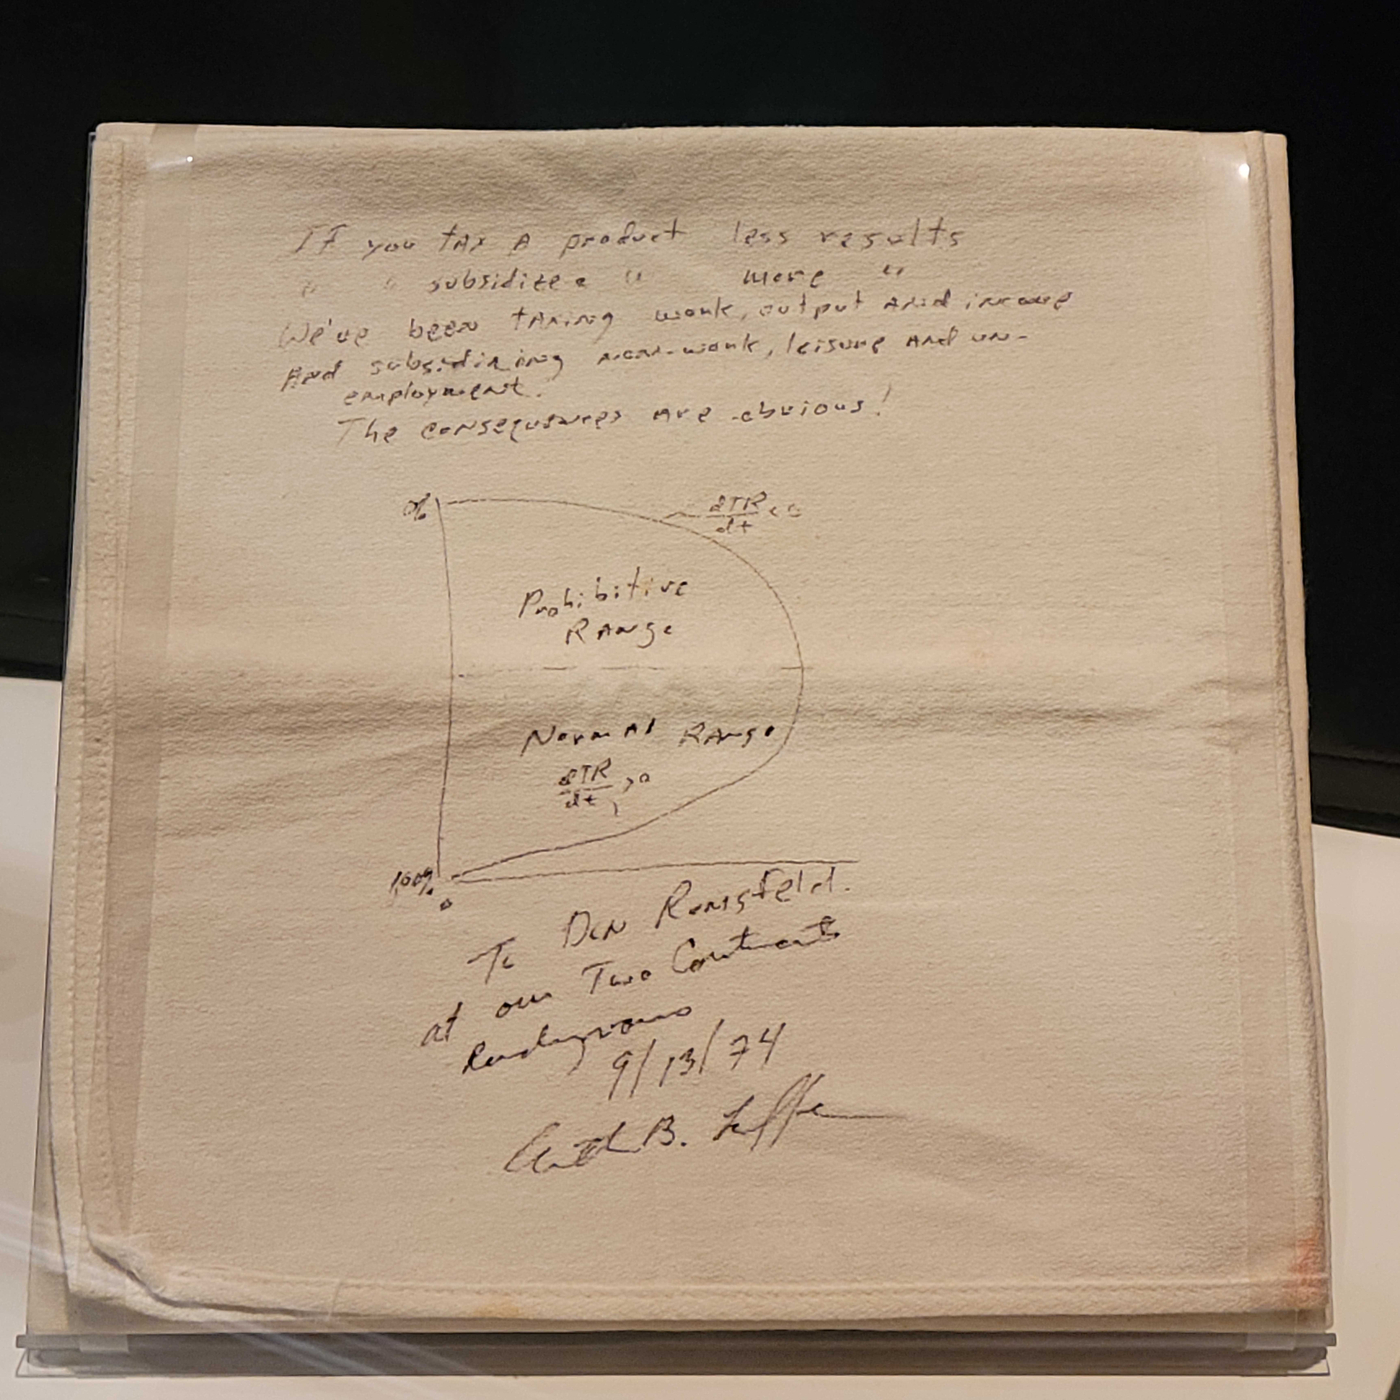 If you tax a product less results
" " subsidize a " more "
We've been taxing work, output and income
And subsidizing non-work, leisure and un-
employment.
The consequences are obvious!
%
dTR/dt < 0
Prohibitive
Range
Normal Range
dTR/dt > 0
100%
0
To Don Rumsfeld.
at our Two Continents
Rendezvous
9/13/74
Arthur B. Laffer